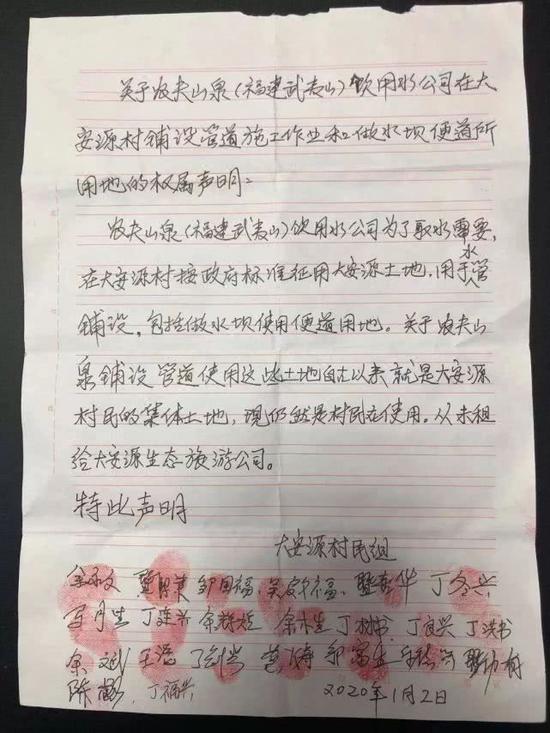 关于农夫山泉(福建武夷山)饮用水公司在大
安源村铺设管道施工作业和做水坝便道所
用地的权属声明:
农夫山泉(福建武夷山)饮用水公司为了取水需要,
在大安源村按政府标准征用大安源土地,用于水管
铺设,包括做水坝使用便道用地。关于农夫山
泉铺设管道使用这些土地自古以来就是大安源
村民的集体土地,现仍然是村民在使用。从未租
给大安源生态旅游公司。
特此声明
大安源村民组
邹国福 吴家福 丁冬兴
丁建兴 余木生 丁树书 丁良兴 丁洪书
余斌 王忠
陈彪 丁福兴 2020年1月2日